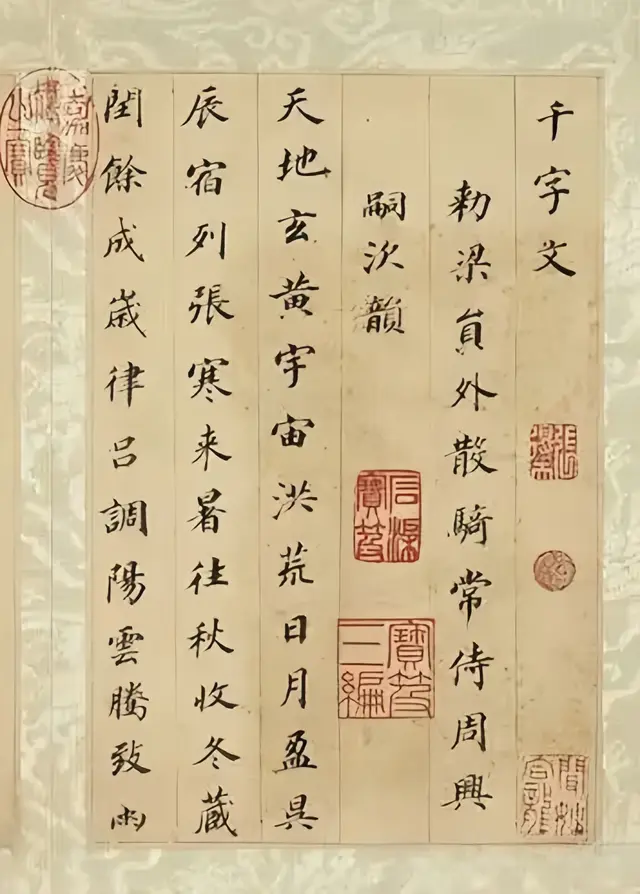 千字文
勑梁貟外散騎常侍周興
嗣次韻
天地玄黄宇宙洪荒日月盈昃
辰宿列張寒来暑往秋收冬蔵
閏餘成嵗律吕調陽雲騰致雨
石渠寶笈
寶笈三編
嘉慶御覽之寶